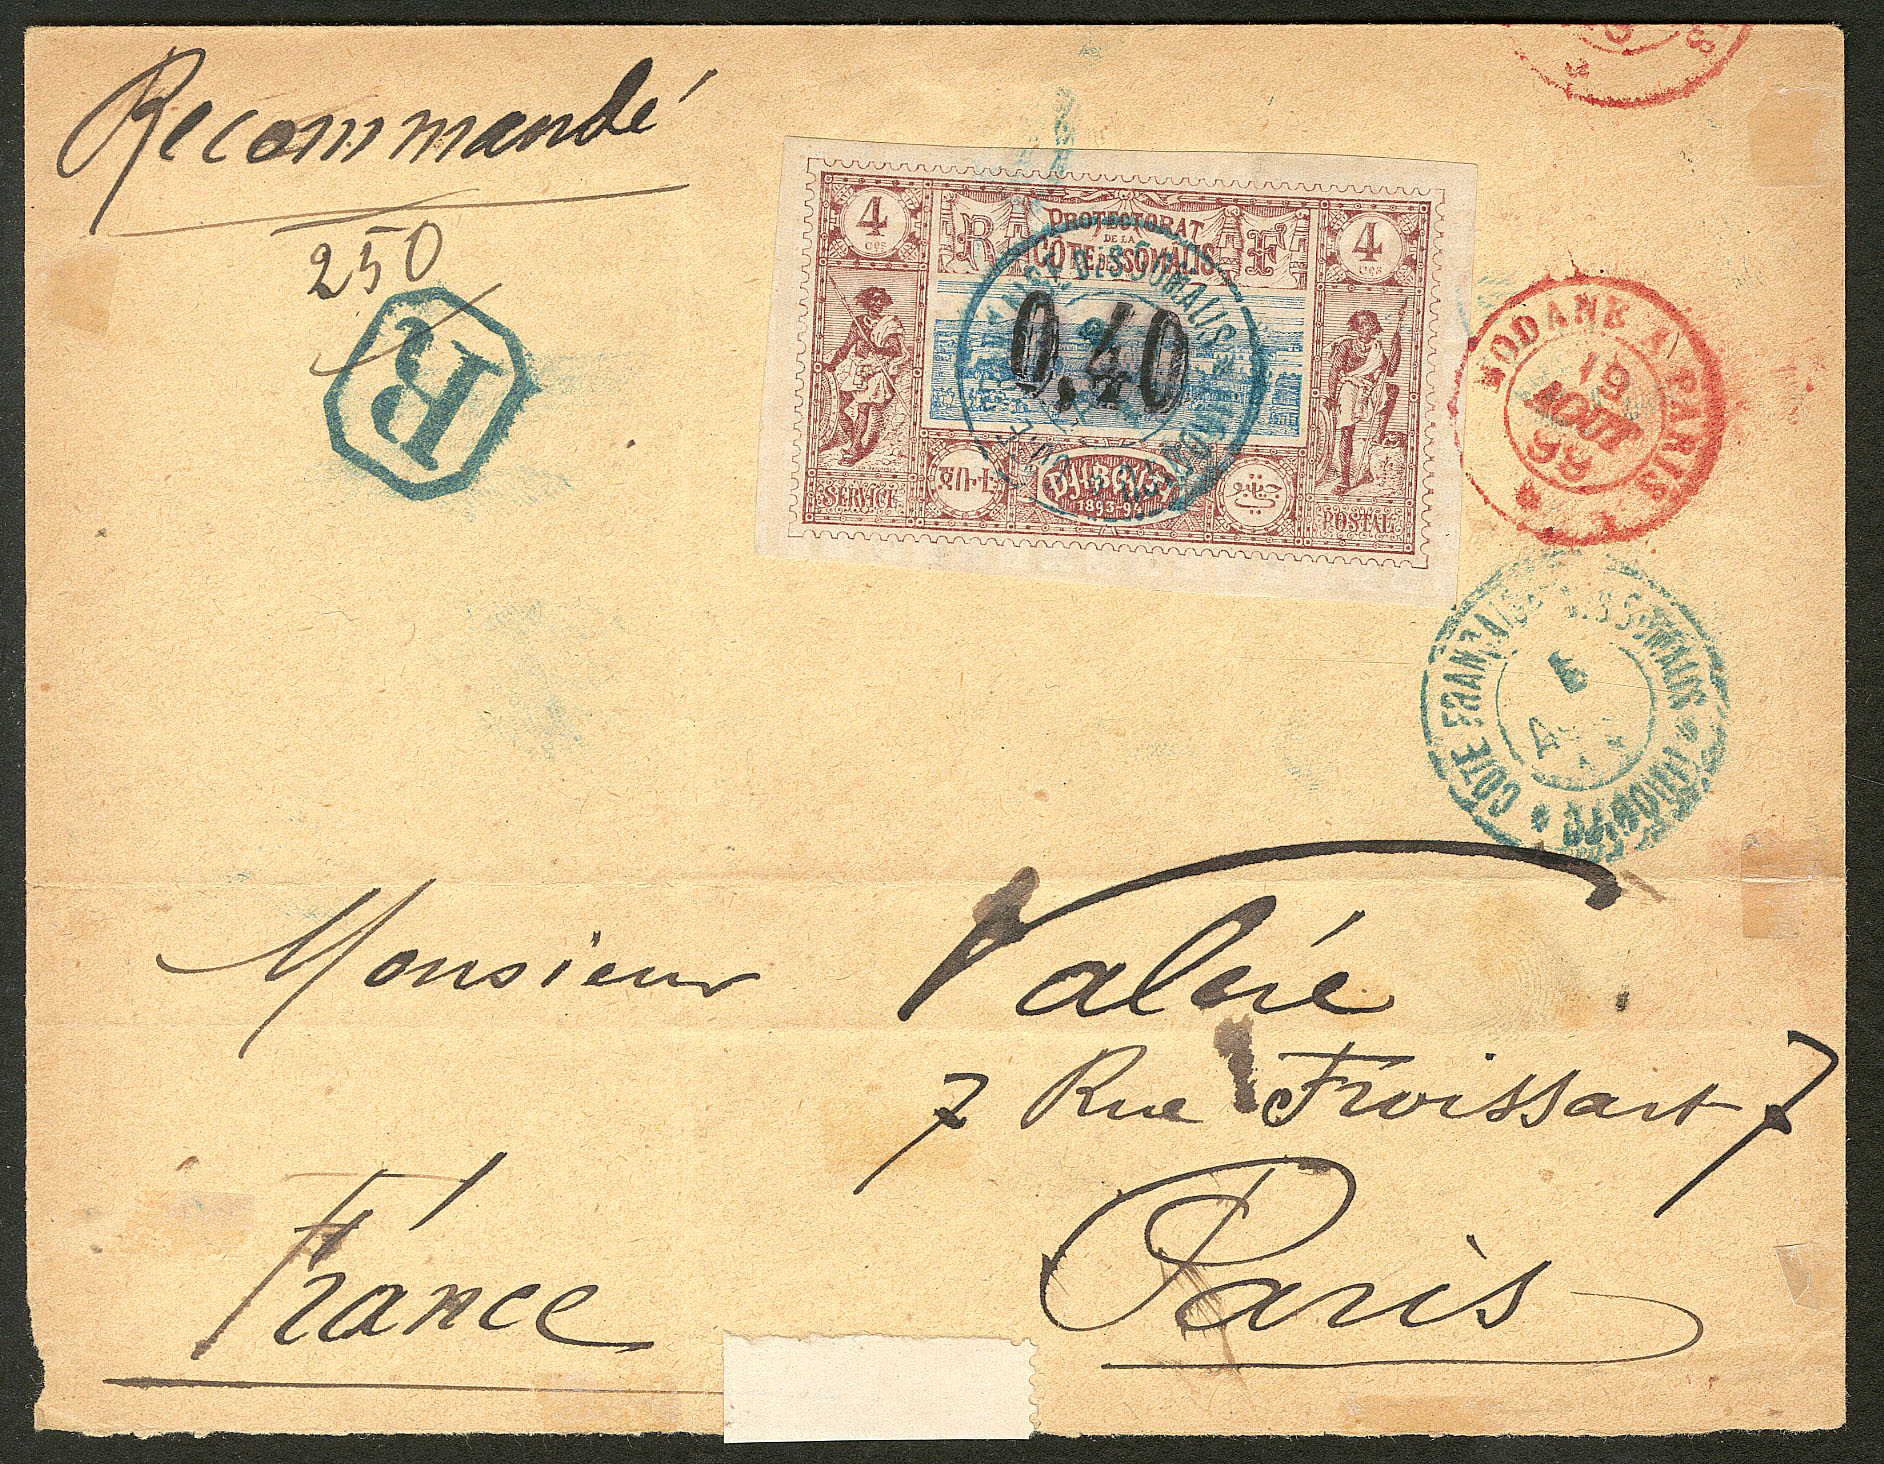 Recommandé
250
R
4
Ces
R
PROTECTORAT
DE LA
CÔTE DES SOMALIS
F
4
Ces
0,40
SERVICE
ጅቡቲ
DJIBOUTI
1893-94
جيبوتي
POSTAL
MODANE A PARIS
19
AOUT
99
COTE FRANÇAISE DES SOMALIS * DJIBOUTI *
5
Monsieur Valérie
7 Rue Froissart 7
France Paris